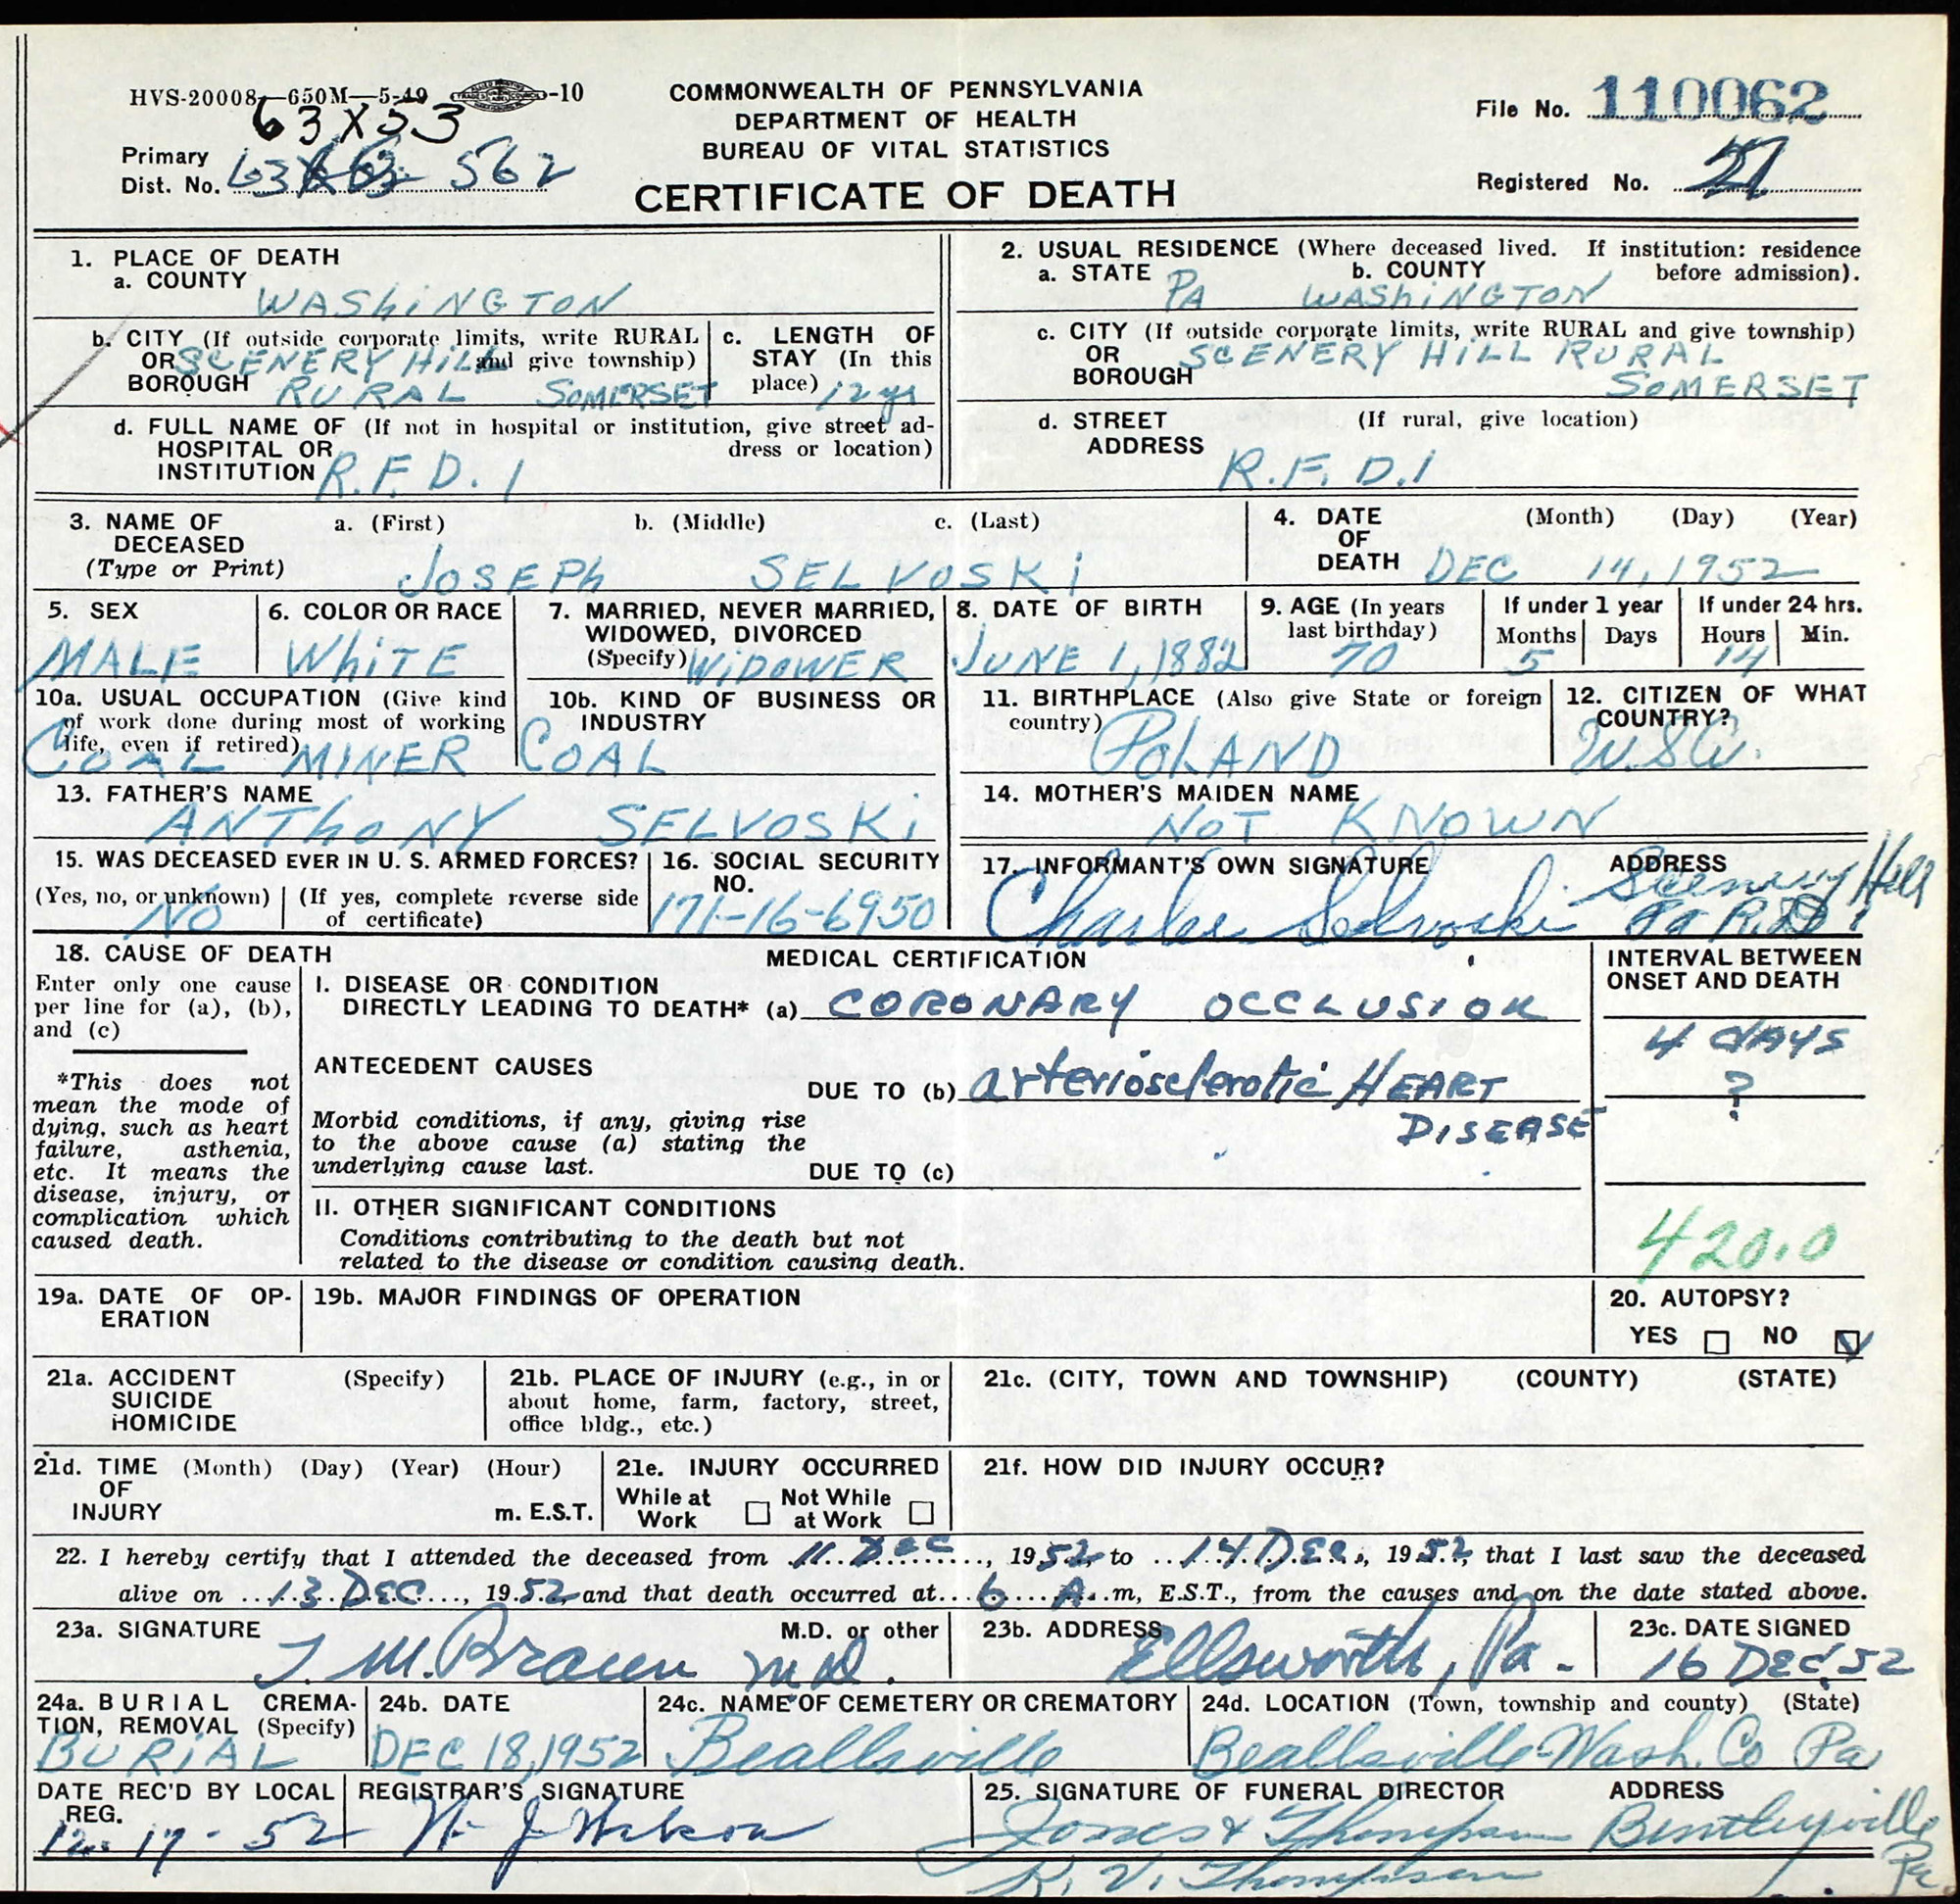 HVS-20008—650M—5-49 -10
63X53
COMMONWEALTH OF PENNSYLVANIA
DEPARTMENT OF HEALTH
BUREAU OF VITAL STATISTICS
CERTIFICATE OF DEATH
Primary
Dist. No. 63 562
File No. 110062
Registered No.
1. PLACE OF DEATH
a. COUNTY
WAShiNGTON
b. CITY (If outside corporate limits, write RURAL
OR and give township)
BOROUGH
SCENERY HiLL
RURAL SOMERSET
c. LENGTH OF
STAY (In this
place) 12 yrs
d. FULL NAME OF (If not in hospital or institution, give street ad-
HOSPITAL OR dress or location)
INSTITUTION R.F.D. 1
2. USUAL RESIDENCE (Where deceased lived. If institution: residence
a. STATE b. COUNTY before admission).
PA WAShiNGTON
c. CITY (If outside corporate limits, write RURAL and give township)
OR SCENERY HILL RURAL
BOROUGH SOMERSET
d. STREET (If rural, give location)
ADDRESS
R.F.D.1
3. NAME OF a. (First) b. (Middle) c. (Last)
DECEASED
(Type or Print) JOSEPh SELVOSKi
4. DATE (Month) (Day) (Year)
OF
DEATH DEC 14, 1952
5. SEX
MALE
6. COLOR OR RACE
WhiTE
7. MARRIED, NEVER MARRIED,
WIDOWED, DIVORCED
(Specify) WiDOWER
8. DATE OF BIRTH
JUNE 1, 1882
9. AGE (In years
last birthday)
70
If under 1 year
Months Days
5
If under 24 hrs.
Hours Min.
14
10a. USUAL OCCUPATION (Give kind
of work done during most of working
life, even if retired)
COAL MINER
10b. KIND OF BUSINESS OR
INDUSTRY
COAL
11. BIRTHPLACE (Also give State or foreign
country)
POLAND
12. CITIZEN OF WHAT
COUNTRY?
13. FATHER'S NAME
ANThONY SELVOSKi
14. MOTHER'S MAIDEN NAME
NOT KNOWN
15. WAS DECEASED EVER IN U. S. ARMED FORCES?
(Yes, no, or unknown) (If yes, complete reverse side
of certificate)
NO
16. SOCIAL SECURITY
NO.
171-16-6950
17. INFORMANT'S OWN SIGNATURE ADDRESS
Charles Selvoski Scenery Hill
Pa R.D. 1
18. CAUSE OF DEATH
Enter only one cause
per line for (a), (b),
and (c)
*This does not
mean the mode of
dying, such as heart
failure, asthenia,
etc. It means the
disease, injury, or
complication which
caused death.
MEDICAL CERTIFICATION
I. DISEASE OR CONDITION
DIRECTLY LEADING TO DEATH* (a) CORONARY OCCLUSION
ANTECEDENT CAUSES
DUE TO (b) arteriosclerotic HEART
DISEASE
Morbid conditions, if any, giving rise
to the above cause (a) stating the
underlying cause last.
DUE TO (c)
II. OTHER SIGNIFICANT CONDITIONS
Conditions contributing to the death but not
related to the disease or condition causing death.
INTERVAL BETWEEN
ONSET AND DEATH
4 dAYS
?
420.0
19a. DATE OF OP-
ERATION
19b. MAJOR FINDINGS OF OPERATION
20. AUTOPSY?
YES NO
21a. ACCIDENT (Specify)
SUICIDE
HOMICIDE
21b. PLACE OF INJURY (e.g., in or
about home, farm, factory, street,
office bldg., etc.)
21c. (CITY, TOWN AND TOWNSHIP) (COUNTY) (STATE)
21d. TIME (Month) (Day) (Year) (Hour)
OF
INJURY m. E.S.T.
21e. INJURY OCCURRED
While at Not While
Work at Work
21f. HOW DID INJURY OCCUR?
22. I hereby certify that I attended the deceased from 11 Dec, 1952 to 14 DEC, 1952, that I last saw the deceased
alive on 13 DEC, 1952 and that death occurred at 6 A.m, E.S.T., from the causes and on the date stated above.
23a. SIGNATURE M.D. or other
J. M. Braun M.D.
23b. ADDRESS
Ellsworth, Pa.
23c. DATE SIGNED
16 DEC 52
24a. BURIAL CREMA-
TION, REMOVAL (Specify)
BURIAL
24b. DATE
DEC 18, 1952
24c. NAME OF CEMETERY OR CREMATORY
Beallsville
24d. LOCATION (Town, township and county) (State)
Beallsville-Wash. Co Pa
DATE REC'D BY LOCAL
REG.
12-17-52
REGISTRAR'S SIGNATURE
25. SIGNATURE OF FUNERAL DIRECTOR ADDRESS
Jones & Thompson Bentleyville
K. V. Thompson Pa.